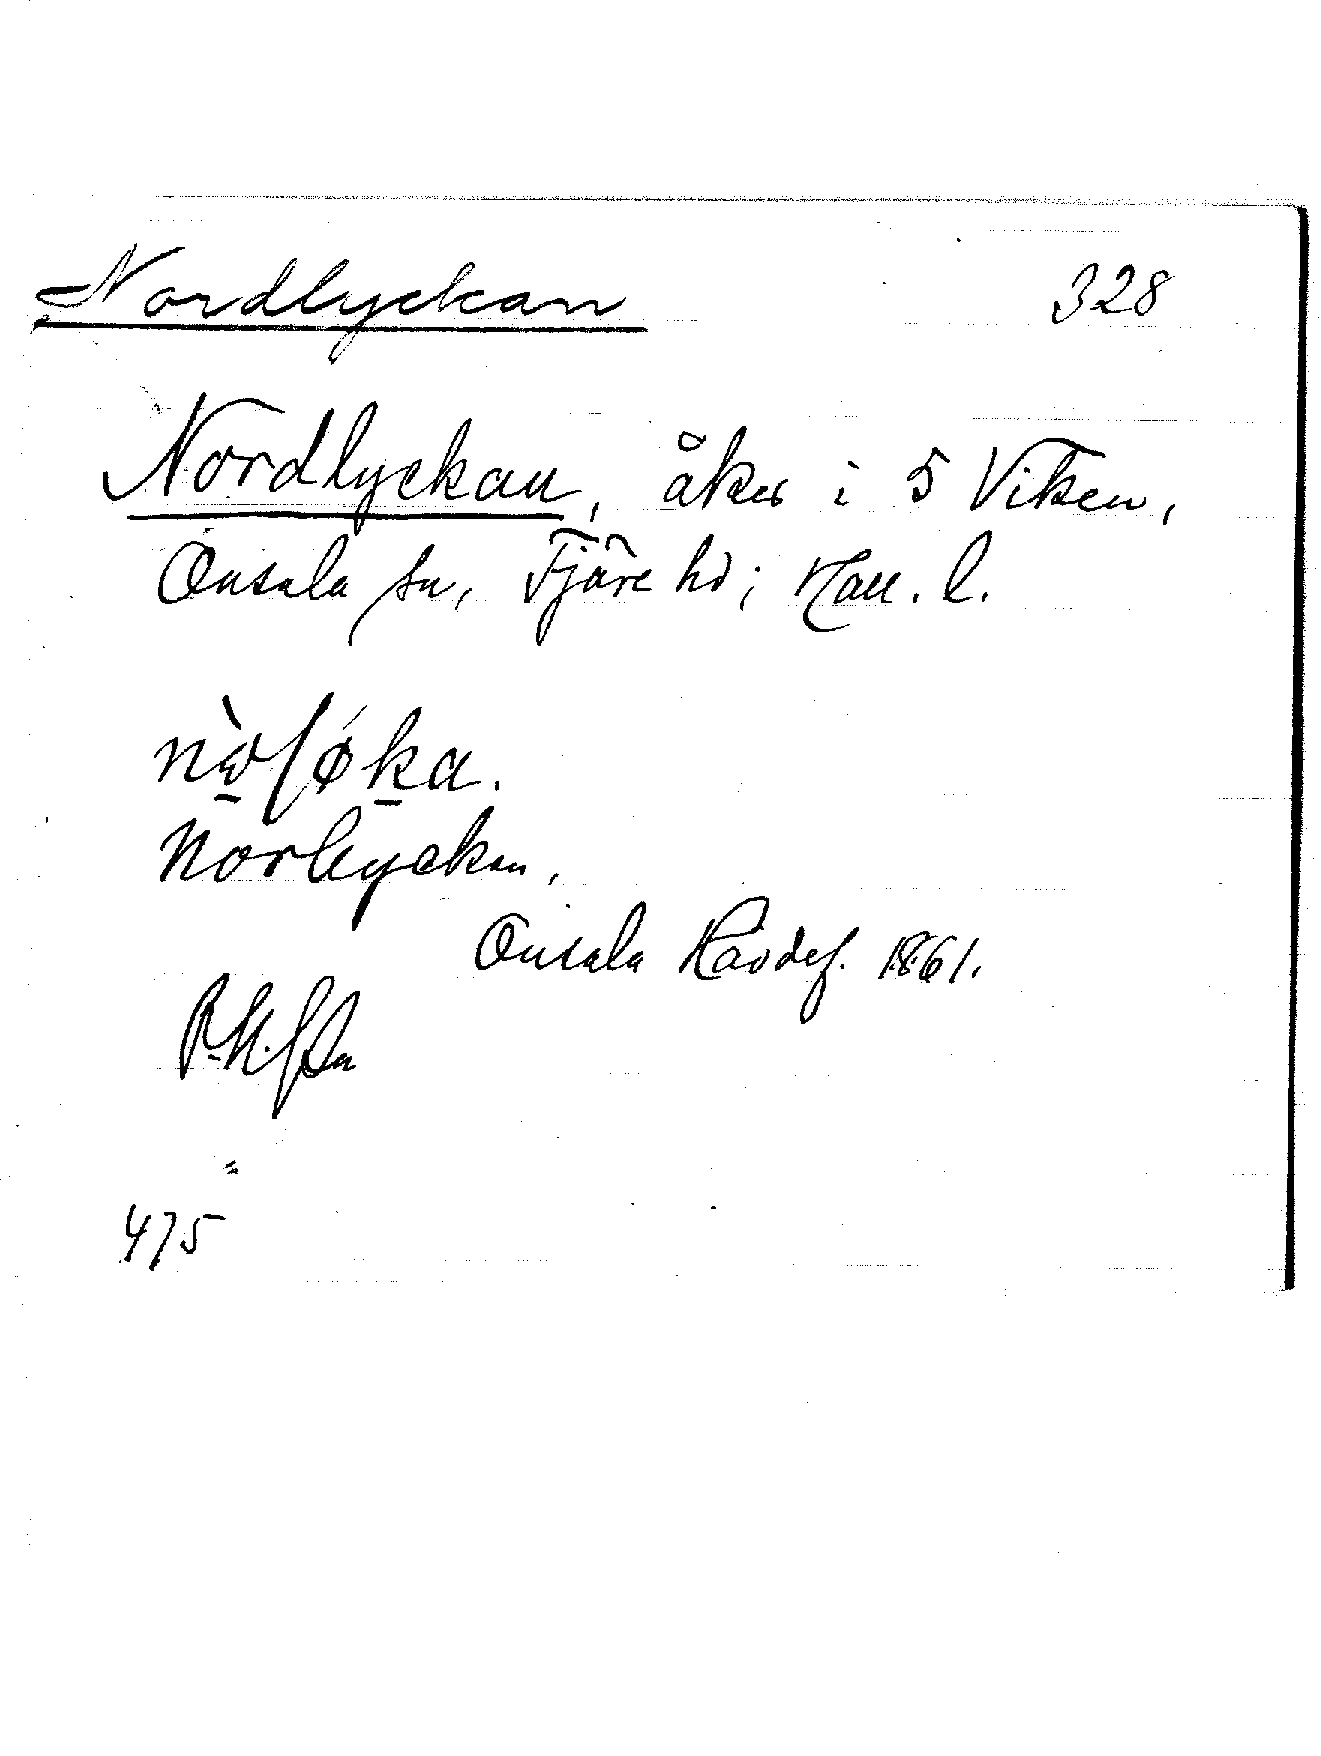 Nordlyckan 328
Nordlyckan, åker i 5 Viken,
Onsala sn, Fjäre hd; Hall. l.
Norlyckan,
Onsala 1861.
475